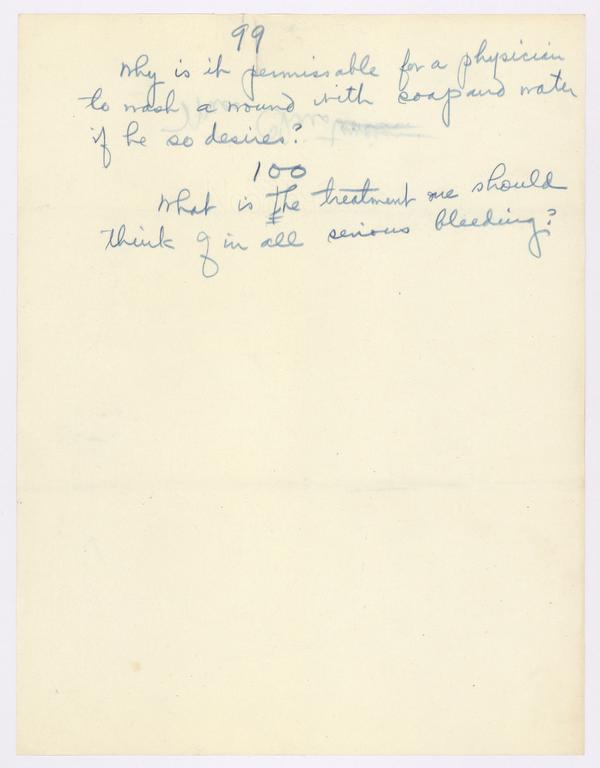 99
Why is it permissable for a physician
to wash a wound with soap and water
if he so desires?
100
What is the treatment one should
think of in all serious bleeding?